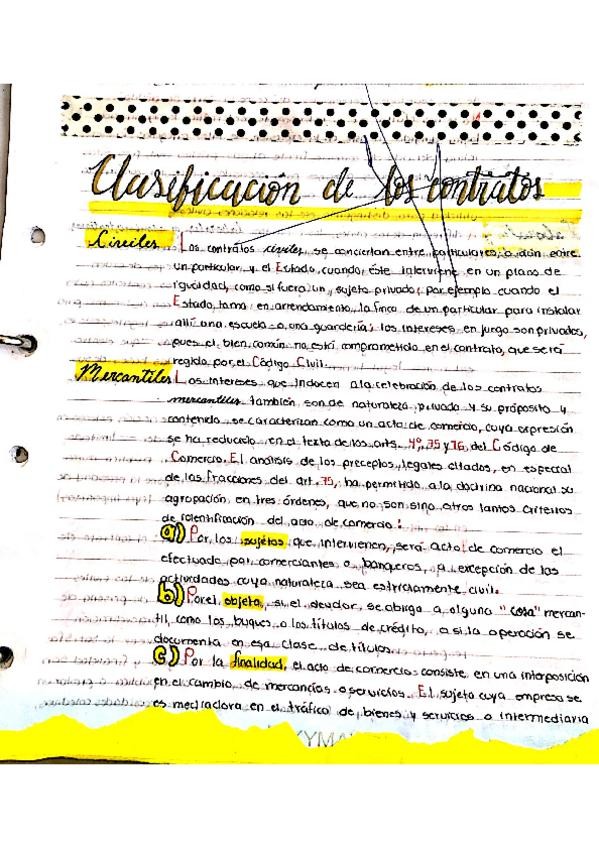 Clasificación de los contratos
Civiles Los contratos civiles, se conciertan entre particulares, o aún entre
un particular y el Estado, cuando éste interviene en un plano de
igualdad, como si fuera un sujeto privado; por ejemplo cuando el
Estado toma en arrendamiento la finca de un particular para instalar
allí una escuela o una guardería; los intereses en juego son privados,
pues el bien común no está comprometido en el contrato, que será
regido por el Código Civil.
Mercantiles Los intereses que inducen a la celebración de los contratos
mercantiles también son de naturaleza privada y su propósito y
contenido se caracterizan como un acto de comercio, cuya expresión
se ha reducido en el texto de los arts. 4º, 75 y 76, del Código de
Comercio. El análisis de los preceptos legales citados, en especial
de las fracciones del art. 75, ha permitido a la doctrina nacional su
agrupación en tres órdenes, que no son sino otros tantos criterios
de identificación del acto de comercio:
a) Por los sujetos que intervienen, será acto de comercio el
efectuado por comerciantes o banqueros, a excepción de las
actividades cuya naturaleza sea estrictamente civil.
b) Por el objeto, si el deudor, se obliga a alguna "cosa" mercan-
til, como los buques o los títulos de crédito, o si la operación se
documenta en esa clase de títulos.
c) Por la finalidad, el acto de comercio consiste en una interposición
en el cambio de mercancías o servicios. El sujeto cuya empresa se
es mediadora en el tráfico de bienes y servicios o intermediaria